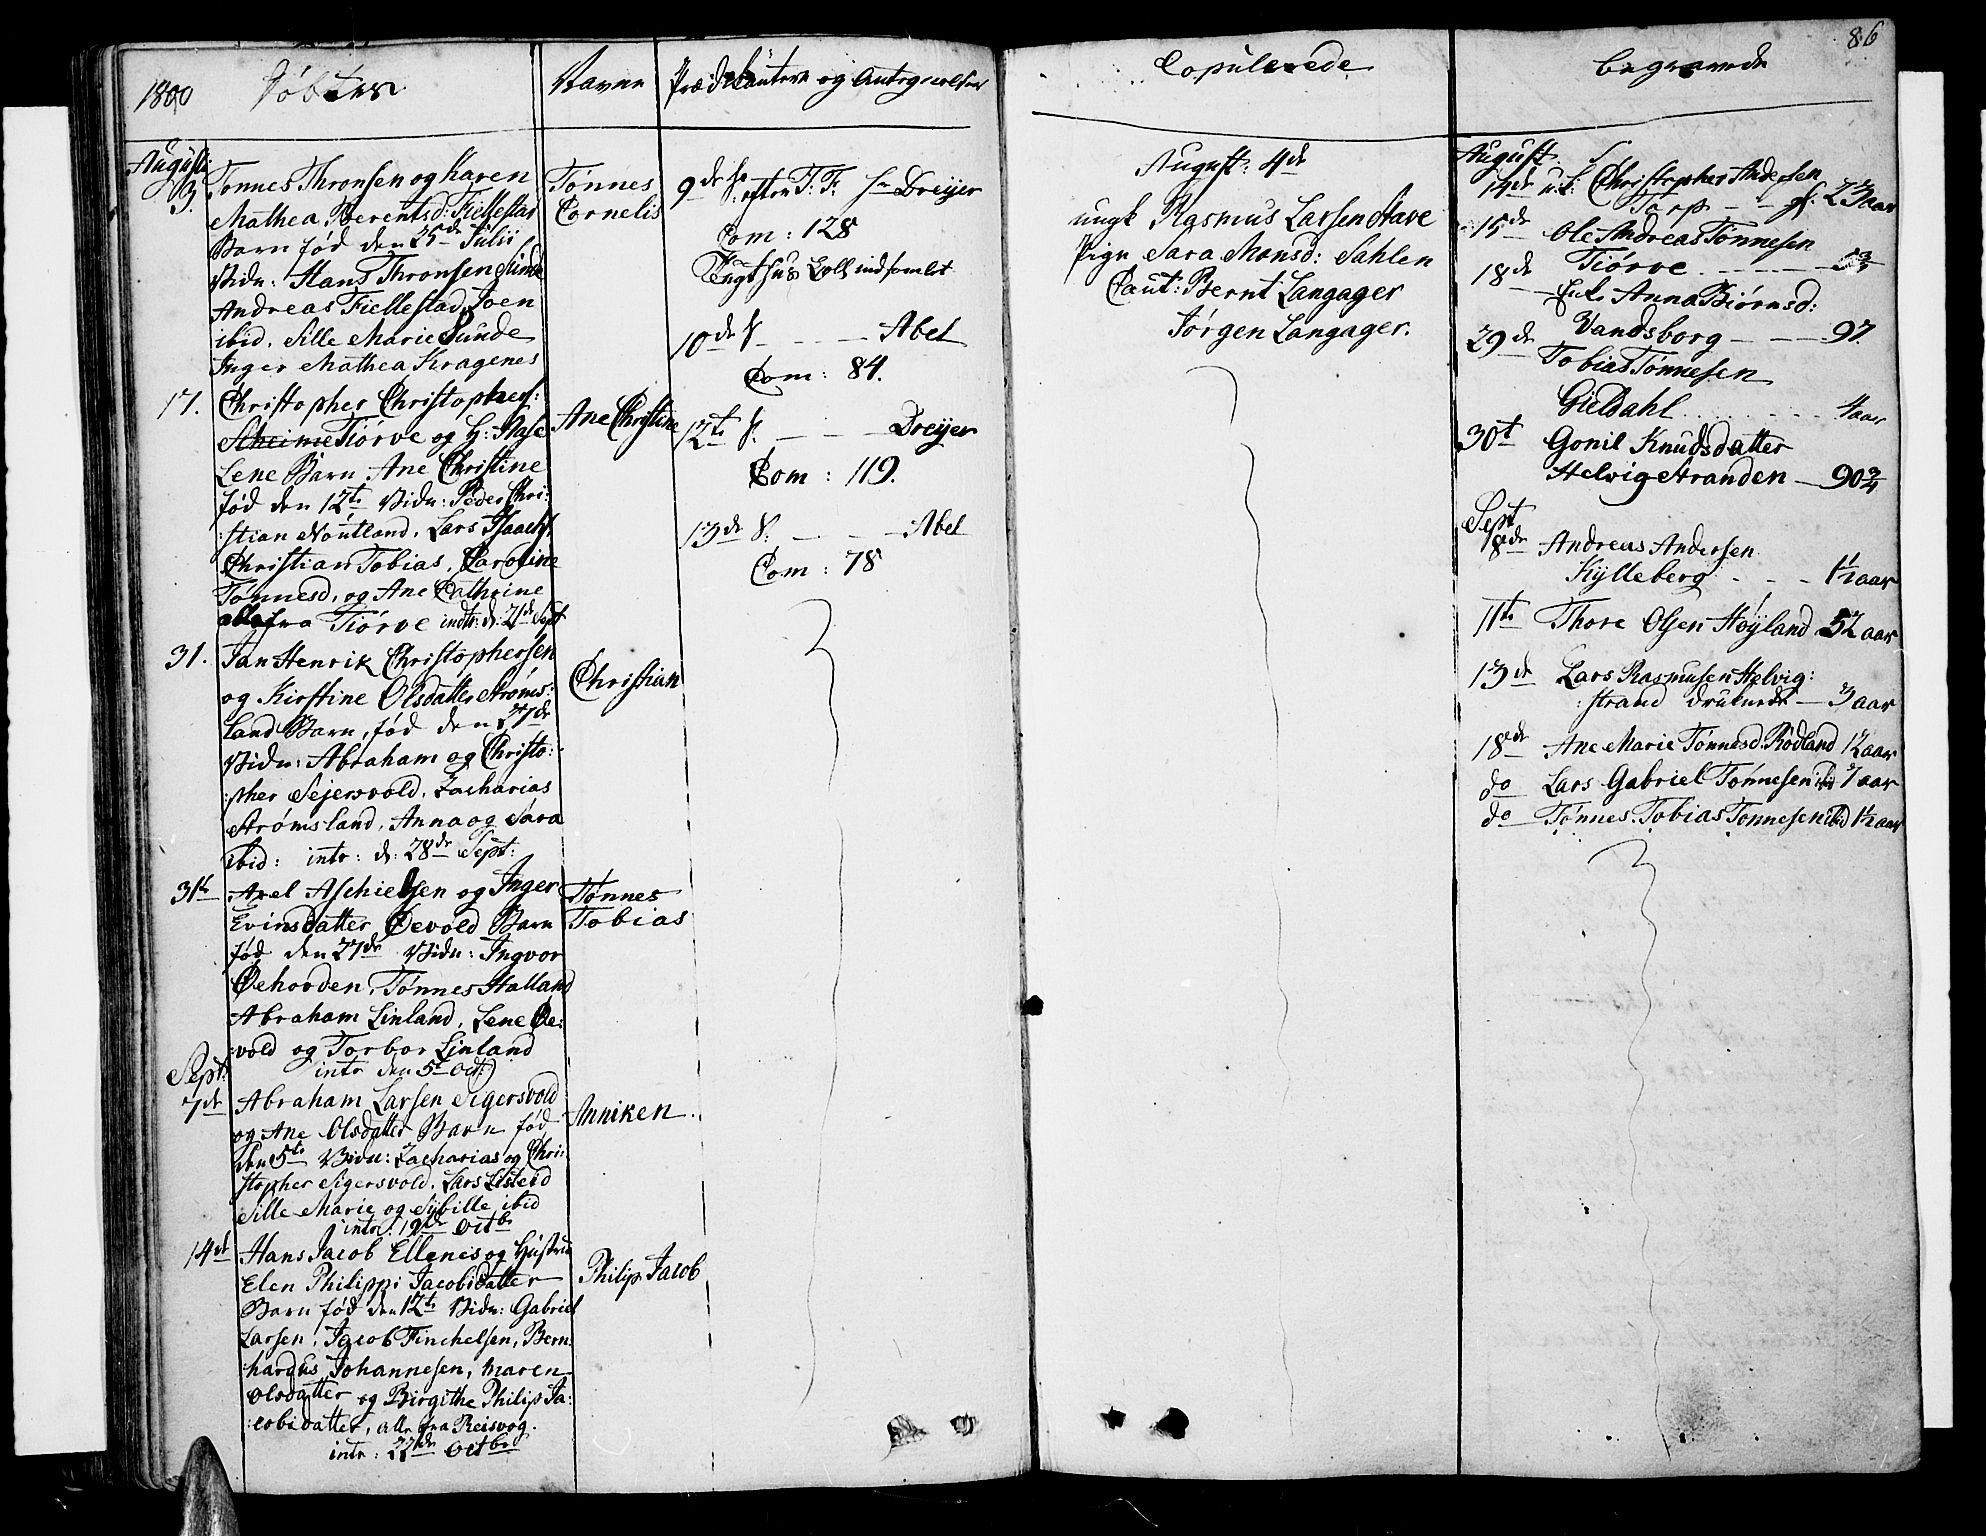 1800
Døbte
Navne
Prædikantere og Antegnelser
Augusti
3.
Tønnes Thronsen og Karen
Mathea Berentsd: Fiellestad
Barn fød den 25de Julii
Vidn: Hans Thronsen Sunde
Andreas Fiellestad, Joen
ibid, Sille Marie Sunde
Inger Mathea Kragenes
Tønnes
Cornelis
17.
Christopher Christophers:
Tiørve og H: Aase
Lene Barn Ane Christine
fød den 12te Vidn: Peder Chri:
stian Noutland, Lars Isaachs.
Christian Tobias, Caroline
Tønnesd, og Ane Cathrine
alle fra Tiørve intr: d: 21de Sept
Ane Christine
31.
Jan Henrik Christophersen
og Kirstine Olsdatter Strøms:
land Barn, fød den 27de
Vidn: Abraham og Christo:
:pher Sejersvold, Zacharias
Strømsland, Anna og Sara
ibid: intr: d: 28de Sept:
Christian
31te
Axel Aschielsen og Inger
Evinsdatter Øevold Barn
fød den 27de Vidn: Ingvor
Øehovden, Tønnes Halland
Abraham Linland, Lene Øe:
:vold og Torbor Linland
intr den 5te Oct:
Tønnes
Tobias
Sept:
7de
Abraham Larsen Sigersvold
og Ane Olsdatter Barn fød
den 5te Vidn: Zacharias og Chri:
stopher Sigersvold, Lars Listeid
Sille Marie og Sybille ibid
intr: 19de Octb
Anniken
14de
Hans Jacob Ellenes og Hustrue
Elen Philippi Jacobsdatter
Barn fød den 12te Vidn: Gabriel
Larsen, Jacob Finchelsen, Bern:
hardus Johannesen, Maren
Olsdatter og Birgithe Philip Ja:
:cobsdatter, alle fra Reisvog.
intr: 27de Octb
Philip Jacob
9de S: efter T: F: Hr Dreijer
Com: 128
10de S. - - - Abel
Com: 84.
12te S. - - - Dreijer
Com: 119.
13de S. - - - Abel
Com: 78
Copulerede
August: 4de
ungk Rasmus Larsen Stave
Pige Sara Monsd: Sahlen
Caut: Bernt Langager
Jørgen Langager.
86
begravede
August:
14de u.k: Christopher Andersen
Torp - - 23 aar
15de Ole Andreas Tønnesen
Tiørve
18de Anna Biørnsd:
Vandsborg - - 97.
29de Tobias Tønnesen
Gieldahl 4 aar
30te Gonil Knudsdatter
Helvig Stranden - 90 3/4
Sept
8de Andreas Andersen
Kylleberg - - - 1½ aar
11te Thore Olsen Høyland 52 aar
13de Lars Rasmusen Helvig:
:strand druknede - 3 aar
18de Ane Marie Tønnesd. Rødland 12 aar
do Lars Gabriel Tønnesen ibid 7 aar
do Tønnes Tobias Tønnesen ibid 1½ aar